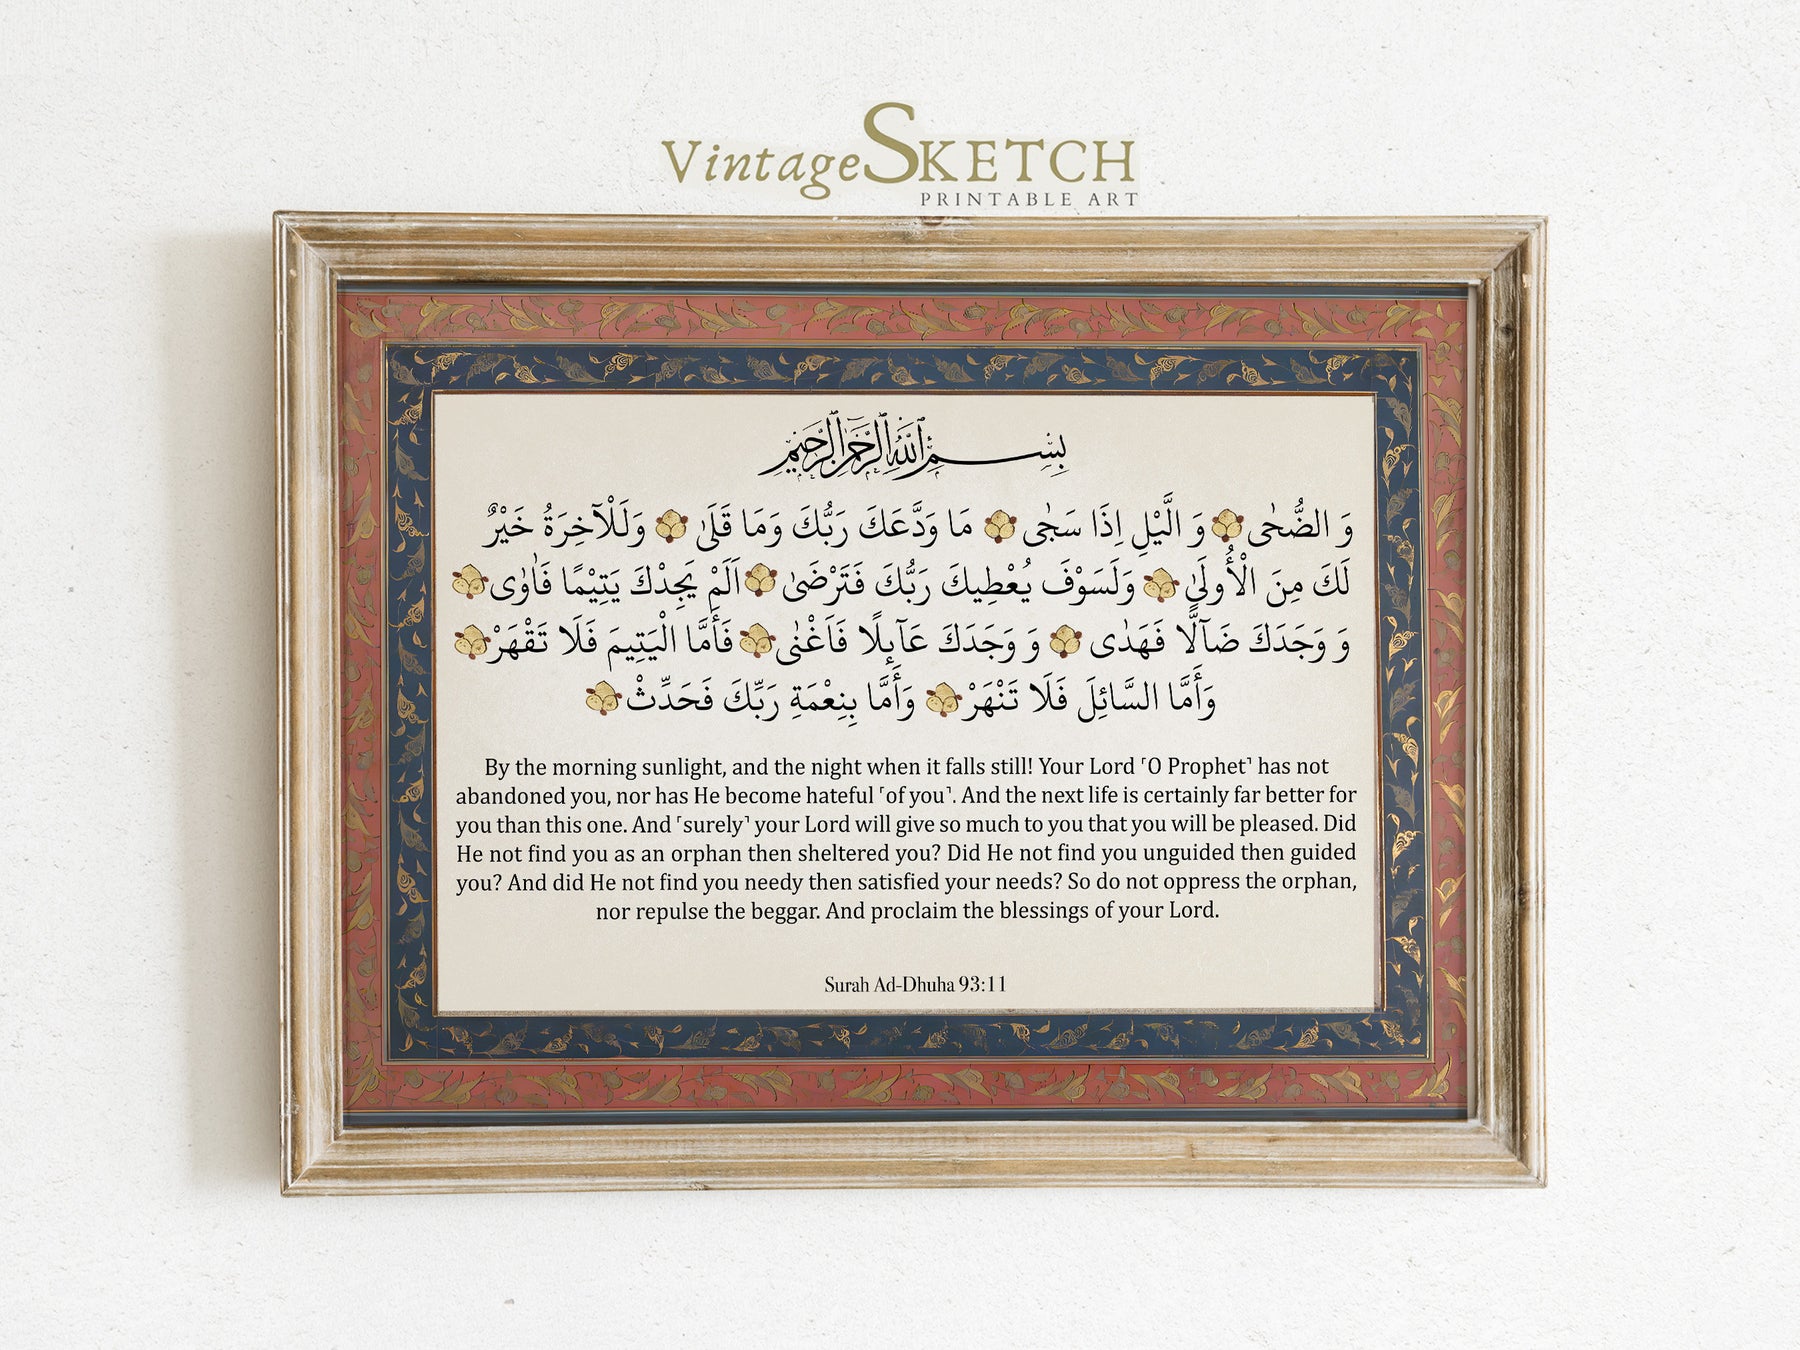 VintageSKETCH
PRINTABLE ART
بِسْمِ اللَّهِ الرَّحْمَٰنِ الرَّحِيمِ
وَ الضُّحٰی وَ الَّيْلِ اِذَا سَجٰی مَا وَدَّعَكَ رَبُّكَ وَمَا قَلَىٰ وَلَلْآخِرَةُ خَيْرٌ
لَكَ مِنَ الْأُولَىٰ وَلَسَوْفَ يُعْطِيكَ رَبُّكَ فَتَرْضَىٰ اَلَمْ يَجِدْكَ يَتِيْمًا فَاٰوٰی
وَ وَجَدَكَ ضَآلًّا فَهَدٰی وَ وَجَدَكَ عَآىِٕلًا فَاَغْنٰی فَأَمَّا الْيَتِيمَ فَلَا تَقْهَرْ
وَأَمَّا السَّائِلَ فَلَا تَنْهَرْ وَأَمَّا بِنِعْمَةِ رَبِّكَ فَحَدِّثْ
By the morning sunlight, and the night when it falls still! Your Lord ˹O Prophet˺ has not
abandoned you, nor has He become hateful ˹of you˺. And the next life is certainly far better for
you than this one. And ˹surely˺ your Lord will give so much to you that you will be pleased. Did
He not find you as an orphan then sheltered you? Did He not find you unguided then guided
you? And did He not find you needy then satisfied your needs? So do not oppress the orphan,
nor repulse the beggar. And proclaim the blessings of your Lord.
Surah Ad-Dhuha 93:11